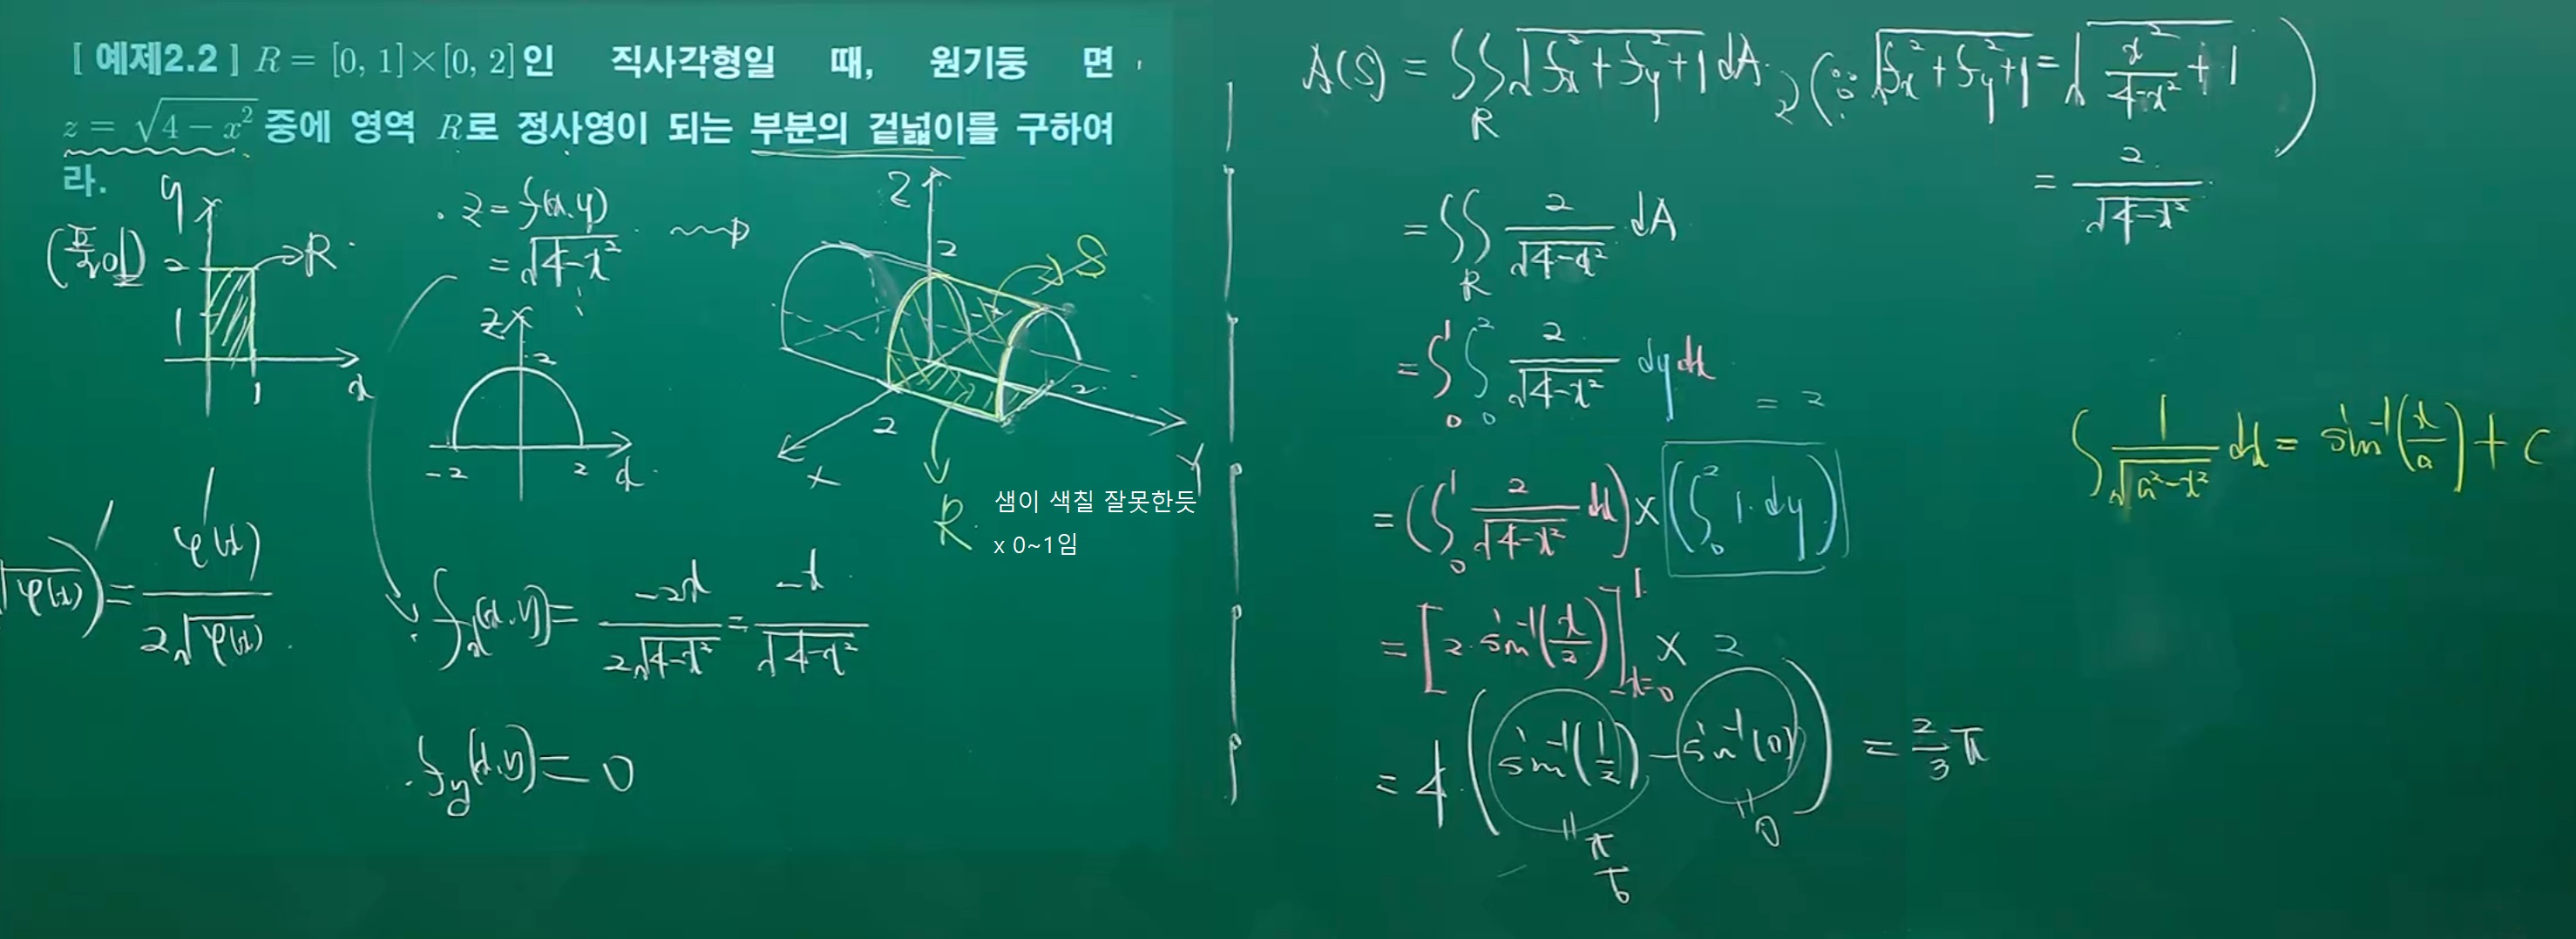 [ 예제2.2 ] R = [0, 1]×[0, 2]인 직사각형일 때, 원기둥 면
z = √(4 − x²) 중에 영역 R로 정사영이 되는 부분의 겉넓이를 구하여
라.
(풀이)
y
2
1
R
1
x
z = f(x,y)
= √(4−x²)
z
2
-2
2
x
Z
2
S
2
2
X
Y
R
샘이 색칠 잘못한듯
x 0~1임
√φ(x))' = φ'(x) / 2√φ(x)
f_x(x,y) = −2x / 2√(4−x²) = −x / √(4−x²)
f_y(x,y) = 0
A(S) = ∬_R √(f_x² + f_y² + 1) dA (∵ √(f_x² + f_y² + 1) = √(x²/(4−x²) + 1)
= 2/√(4−x²) )
= ∬_R 2/√(4−x²) dA
= ∫₀¹ ∫₀² 2/√(4−x²) dy dx
= 2
= (∫₀¹ 2/√(4−x²) dx) × (∫₀² 1·dy)
∫ 1/√(a²−x²) dx = sin⁻¹(x/a) + C
= [2·sin⁻¹(x/2)]_{x=0}^{1} × 2
= 4·(sin⁻¹(1/2) − sin⁻¹(0)) = 2/3 π
= π/6
= 0